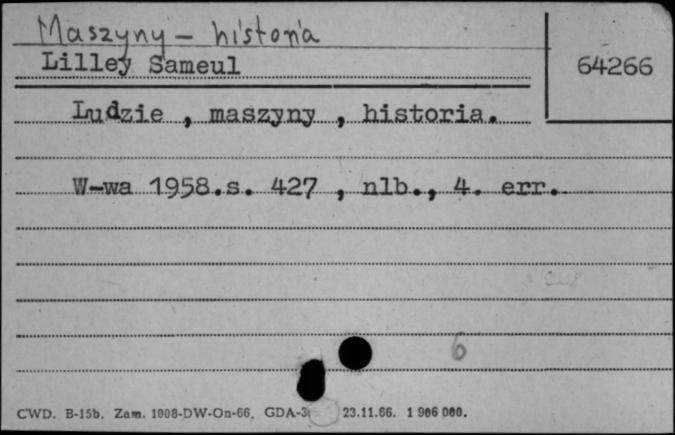 Maszyny - historia
Lilley Sameul
64266
Ludzie , maszyny , historia.
W-wa 1958.s. 427 , nlb., 4. err.
6
CWD. B-15b. Zam. 1008-DW-On-66. GDA-3 23.11.66. 1 906 000.